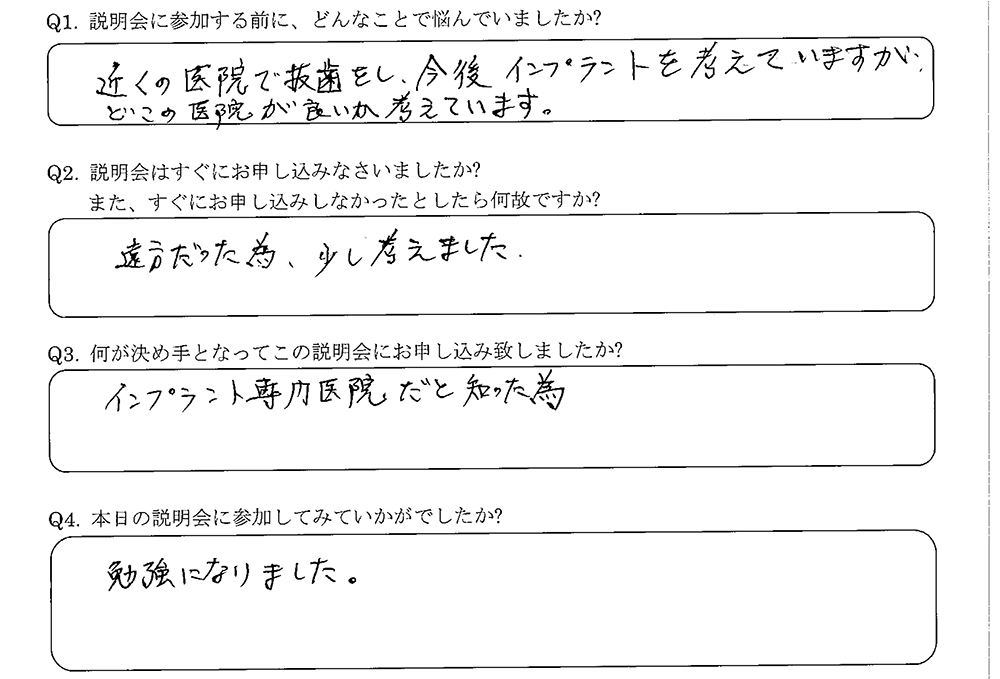 Q1. 説明会に参加する前に、どんなことで悩んでいましたか?
近くの医院で抜歯をし、今後インプラントを考えていますが、
どこの医院が良いか考えています。
Q2. 説明会はすぐにお申し込みなさいましたか?
また、すぐにお申し込みしなかったとしたら何故ですか?
遠方だった為、少し考えました.
Q3. 何が決め手となってこの説明会にお申し込み致しましたか?
インプラント専門医院だと知った為
Q4. 本日の説明会に参加してみていかがでしたか?
勉強になりました。